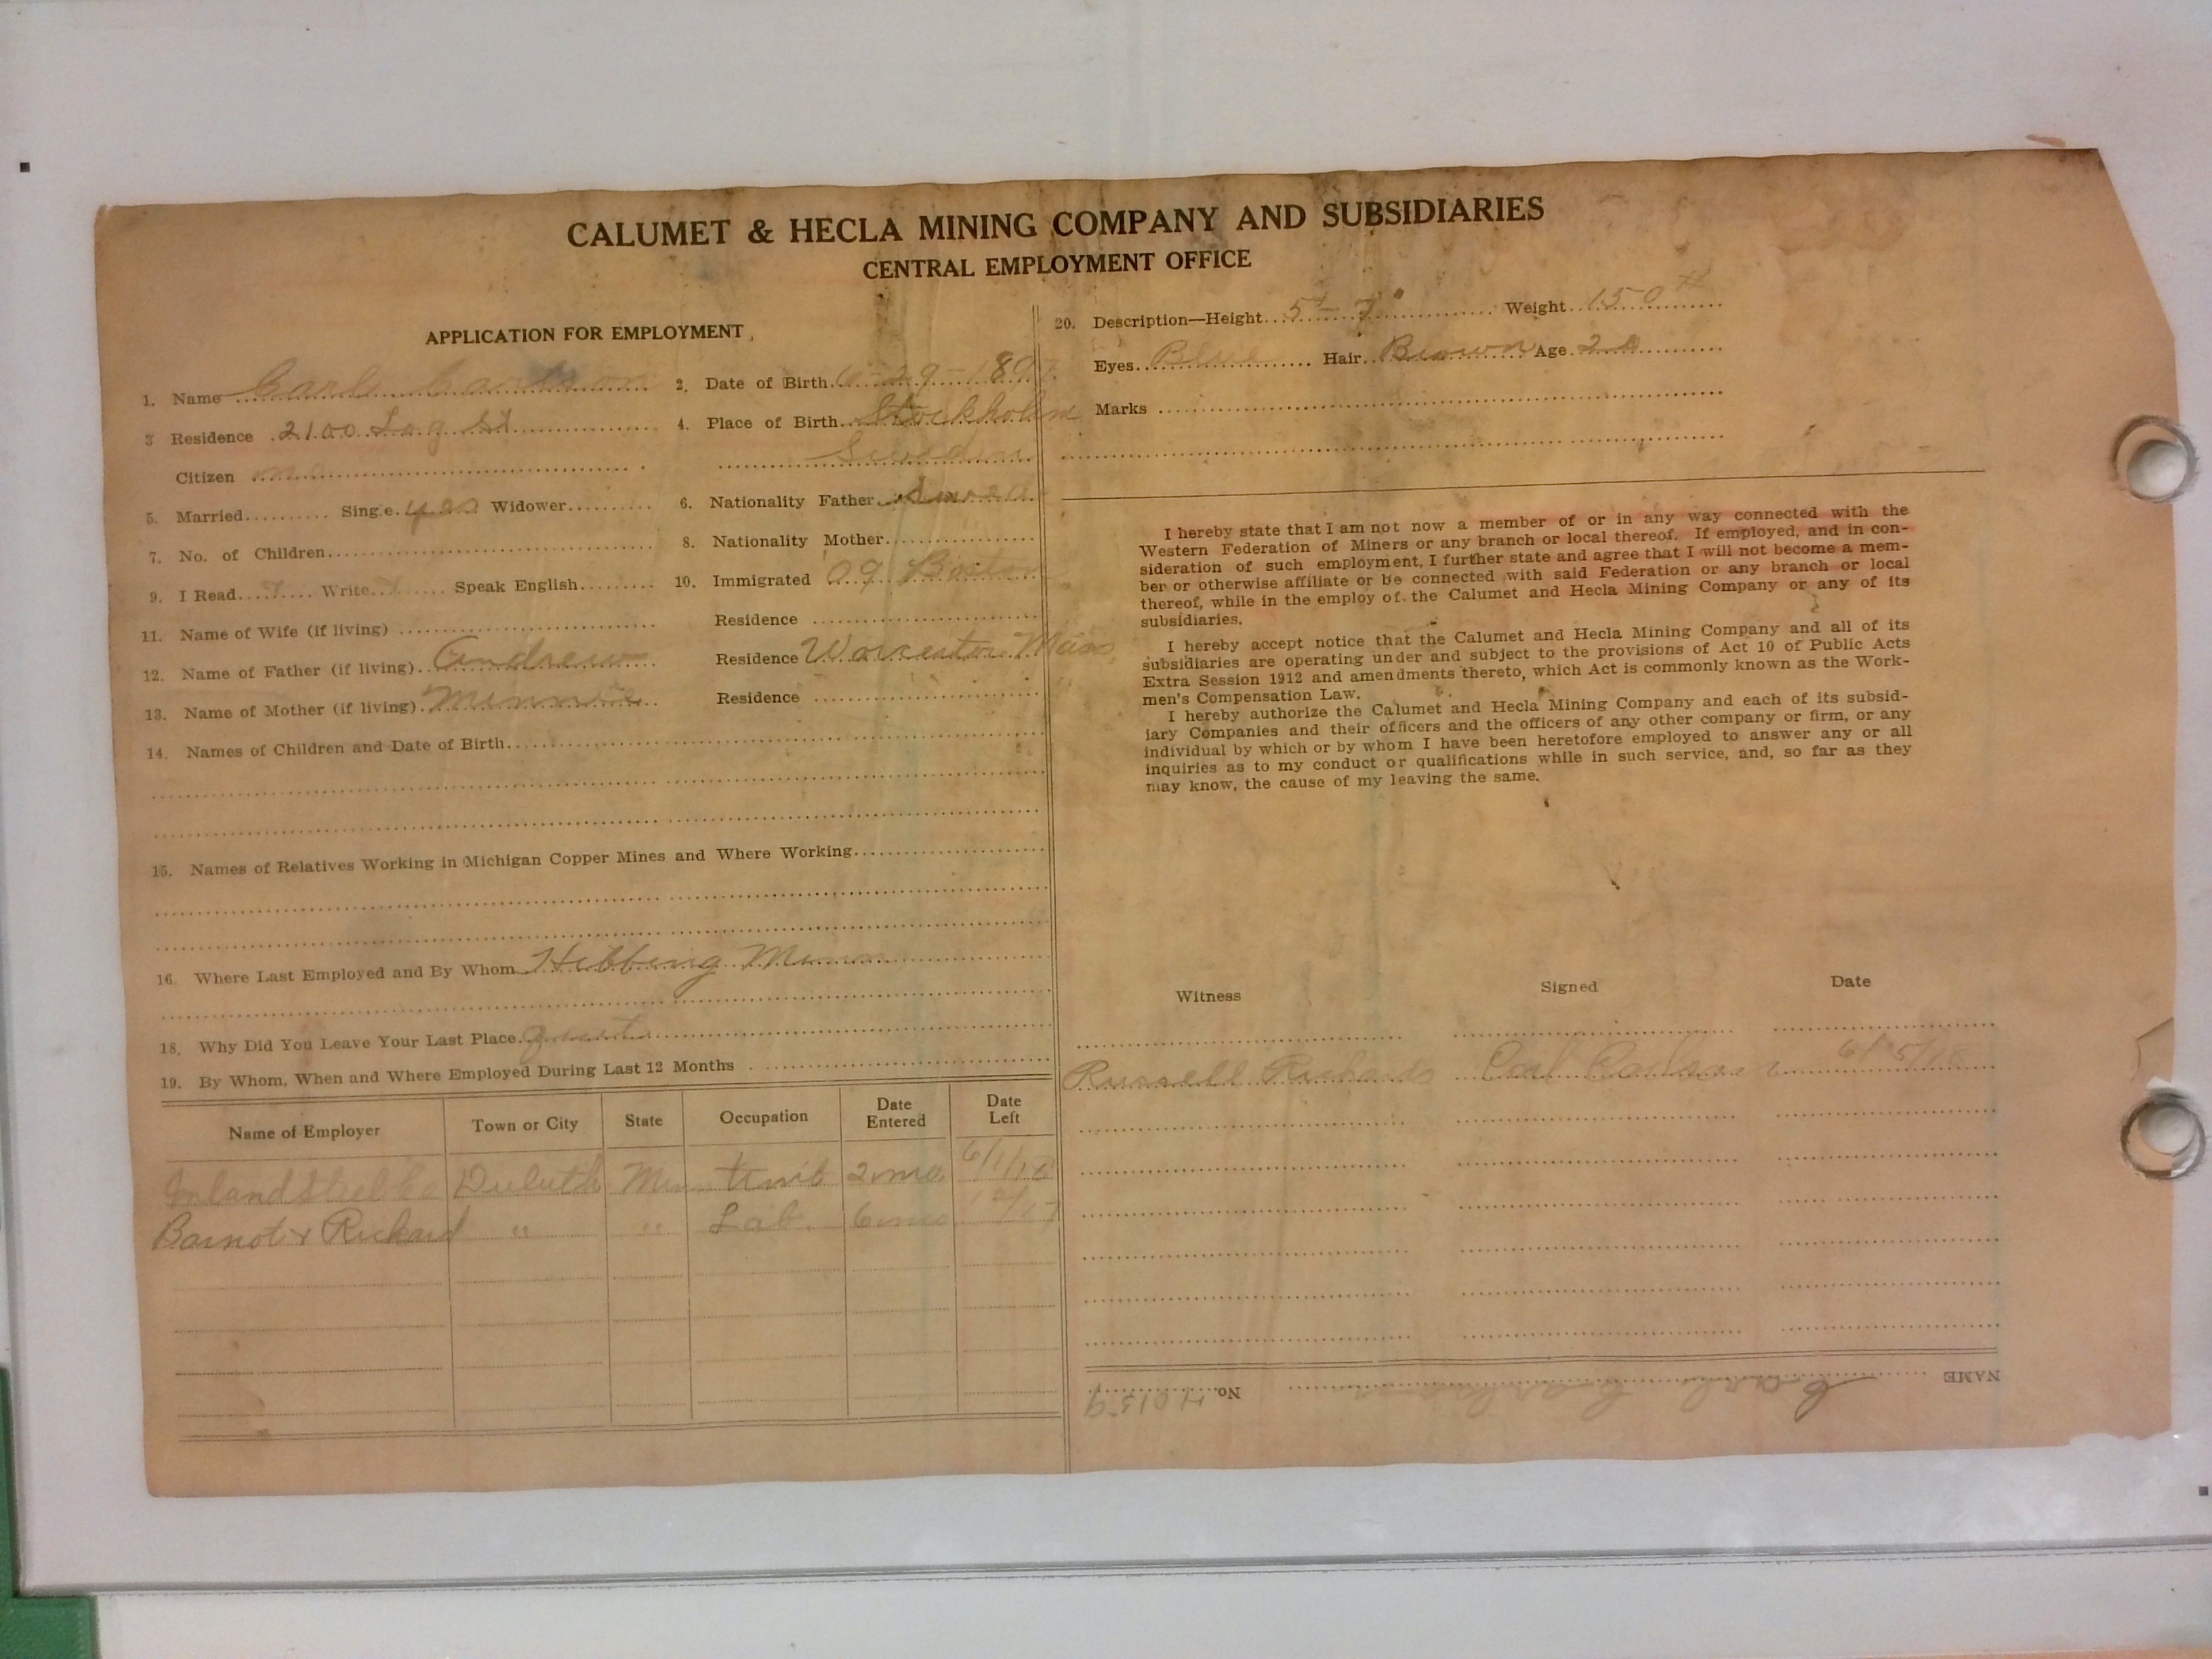 CALUMET & HECLA MINING COMPANY AND SUBSIDIARIES
CENTRAL EMPLOYMENT OFFICE
APPLICATION FOR EMPLOYMENT
1. Name Carl Carlson
2. Date of Birth 6-29-1897
3 Residence 2100 Log St
4. Place of Birth Stockholm
Citizen no
Sweden
5. Married Single yes Widower
6. Nationality Father
7. No. of Children
8. Nationality Mother
9. I Read Write Speak English
10. Immigrated '09 Boston
11. Name of Wife (if living)
Residence
12. Name of Father (if living) Andrew
Residence Worcester Mass
13. Name of Mother (if living) Minnie
Residence
14. Names of Children and Date of Birth
15. Names of Relatives Working in Michigan Copper Mines and Where Working
16. Where Last Employed and By Whom Hibbing Minn
18. Why Did You Leave Your Last Place
19. By Whom, When and Where Employed During Last 12 Months
Name of Employer Town or City State Occupation Date Entered Date Left
Inland Steel Co Duluth Minn 2 mo. 6/1/18
Barnot & Rickard " " Lab. 6 mo 10/17
20. Description—Height 5'-7" Weight 150#
Eyes Blue Hair Brown Age 20
Marks
I hereby state that I am not now a member of or in any way connected with the
Western Federation of Miners or any branch or local thereof. If employed, and in con-
sideration of such employment, I further state and agree that I will not become a mem-
ber or otherwise affiliate or be connected with said Federation or any branch or local
thereof, while in the employ of the Calumet and Hecla Mining Company or any of its
subsidiaries.
I hereby accept notice that the Calumet and Hecla Mining Company and all of its
subsidiaries are operating under and subject to the provisions of Act 10 of Public Acts
Extra Session 1912 and amendments thereto, which Act is commonly known as the Work-
men's Compensation Law.
I hereby authorize the Calumet and Hecla Mining Company and each of its subsid-
iary Companies and their officers and the officers of any other company or firm, or any
individual by which or by whom I have been heretofore employed to answer any or all
inquiries as to my conduct or qualifications while in such service, and, so far as they
may know, the cause of my leaving the same.
Witness Signed Date
Russell Richards Carl Carlson 6/5/18
NAME Carl Carlson No. H0159